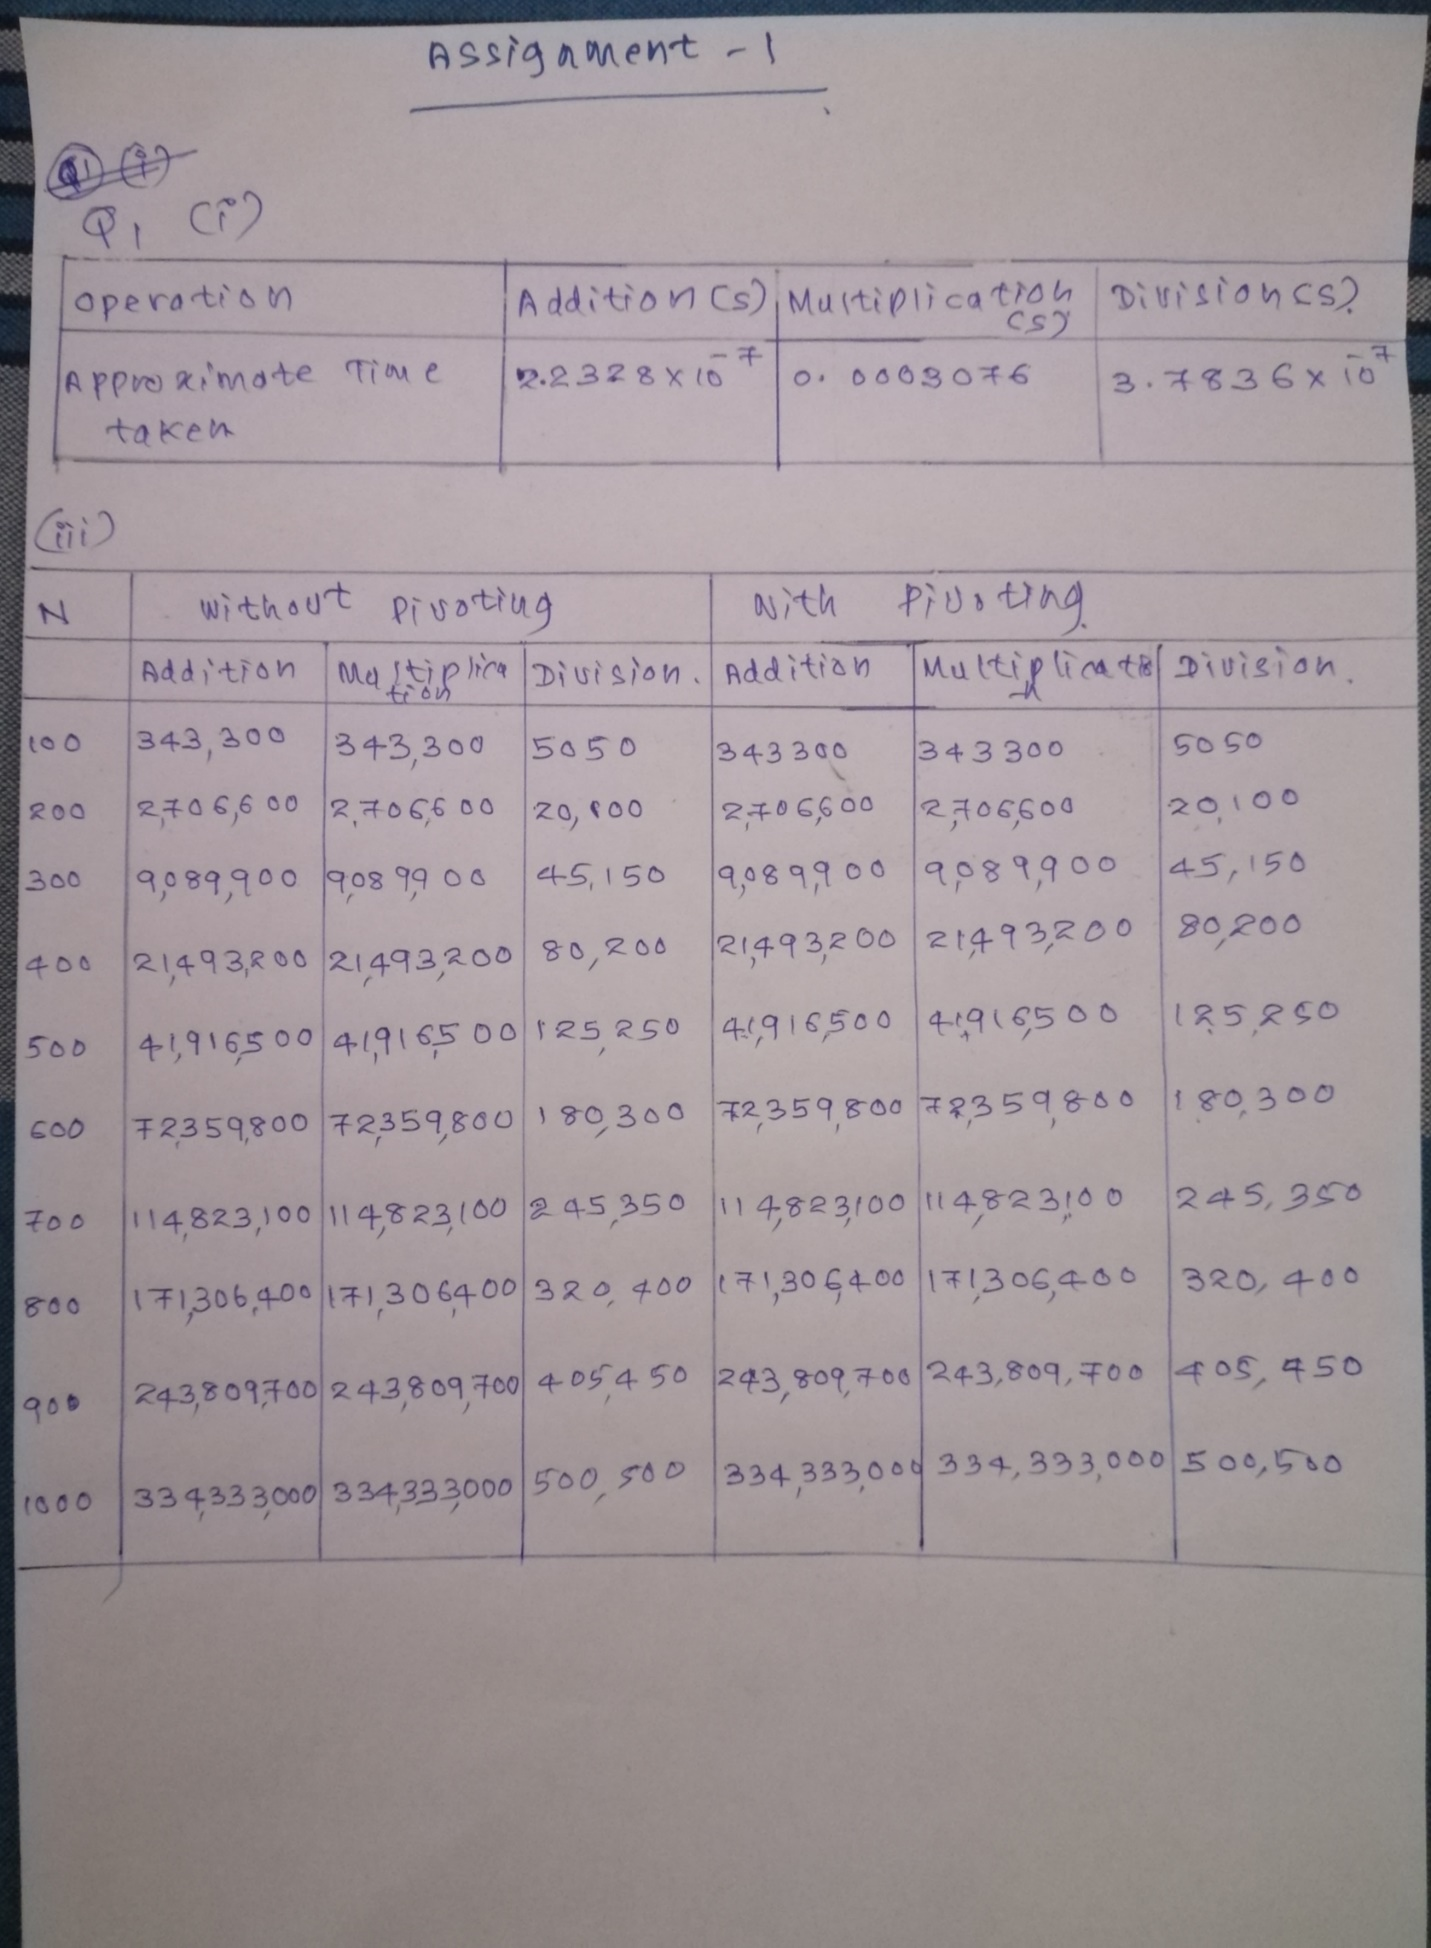 Assignment - 1
Q1 (i)
Operation Addition (s) Multiplication (s) Division (s)
Approximate Time taken 2.2328 x 10^-7 0.0003076 3.7836 x 10^-7
(iii)
N Without Pivoting With Pivoting
Addition Multiplication Division. Addition Multiplication Division.
100 343,300 343,300 5050 343300 343300 5050
200 2,706,600 2,706,600 20,100 2,706,600 2,706,600 20,100
300 9,089,900 9,089,900 45,150 9,089,900 9,089,900 45,150
400 21,493,200 21,493,200 80,200 21,493,200 21,493,200 80,200
500 41,916,500 41,916,500 125,250 41,916,500 41,916,500 125,250
600 72,359,800 72,359,800 180,300 72,359,800 72,359,800 180,300
700 114,823,100 114,823,100 245,350 114,823,100 114,823,100 245,350
800 171,306,400 171,306,400 320,400 171,306,400 171,306,400 320,400
900 243,809,700 243,809,700 405,450 243,809,700 243,809,700 405,450
1000 334,333,000 334,333,000 500,500 334,333,000 334,333,000 500,500